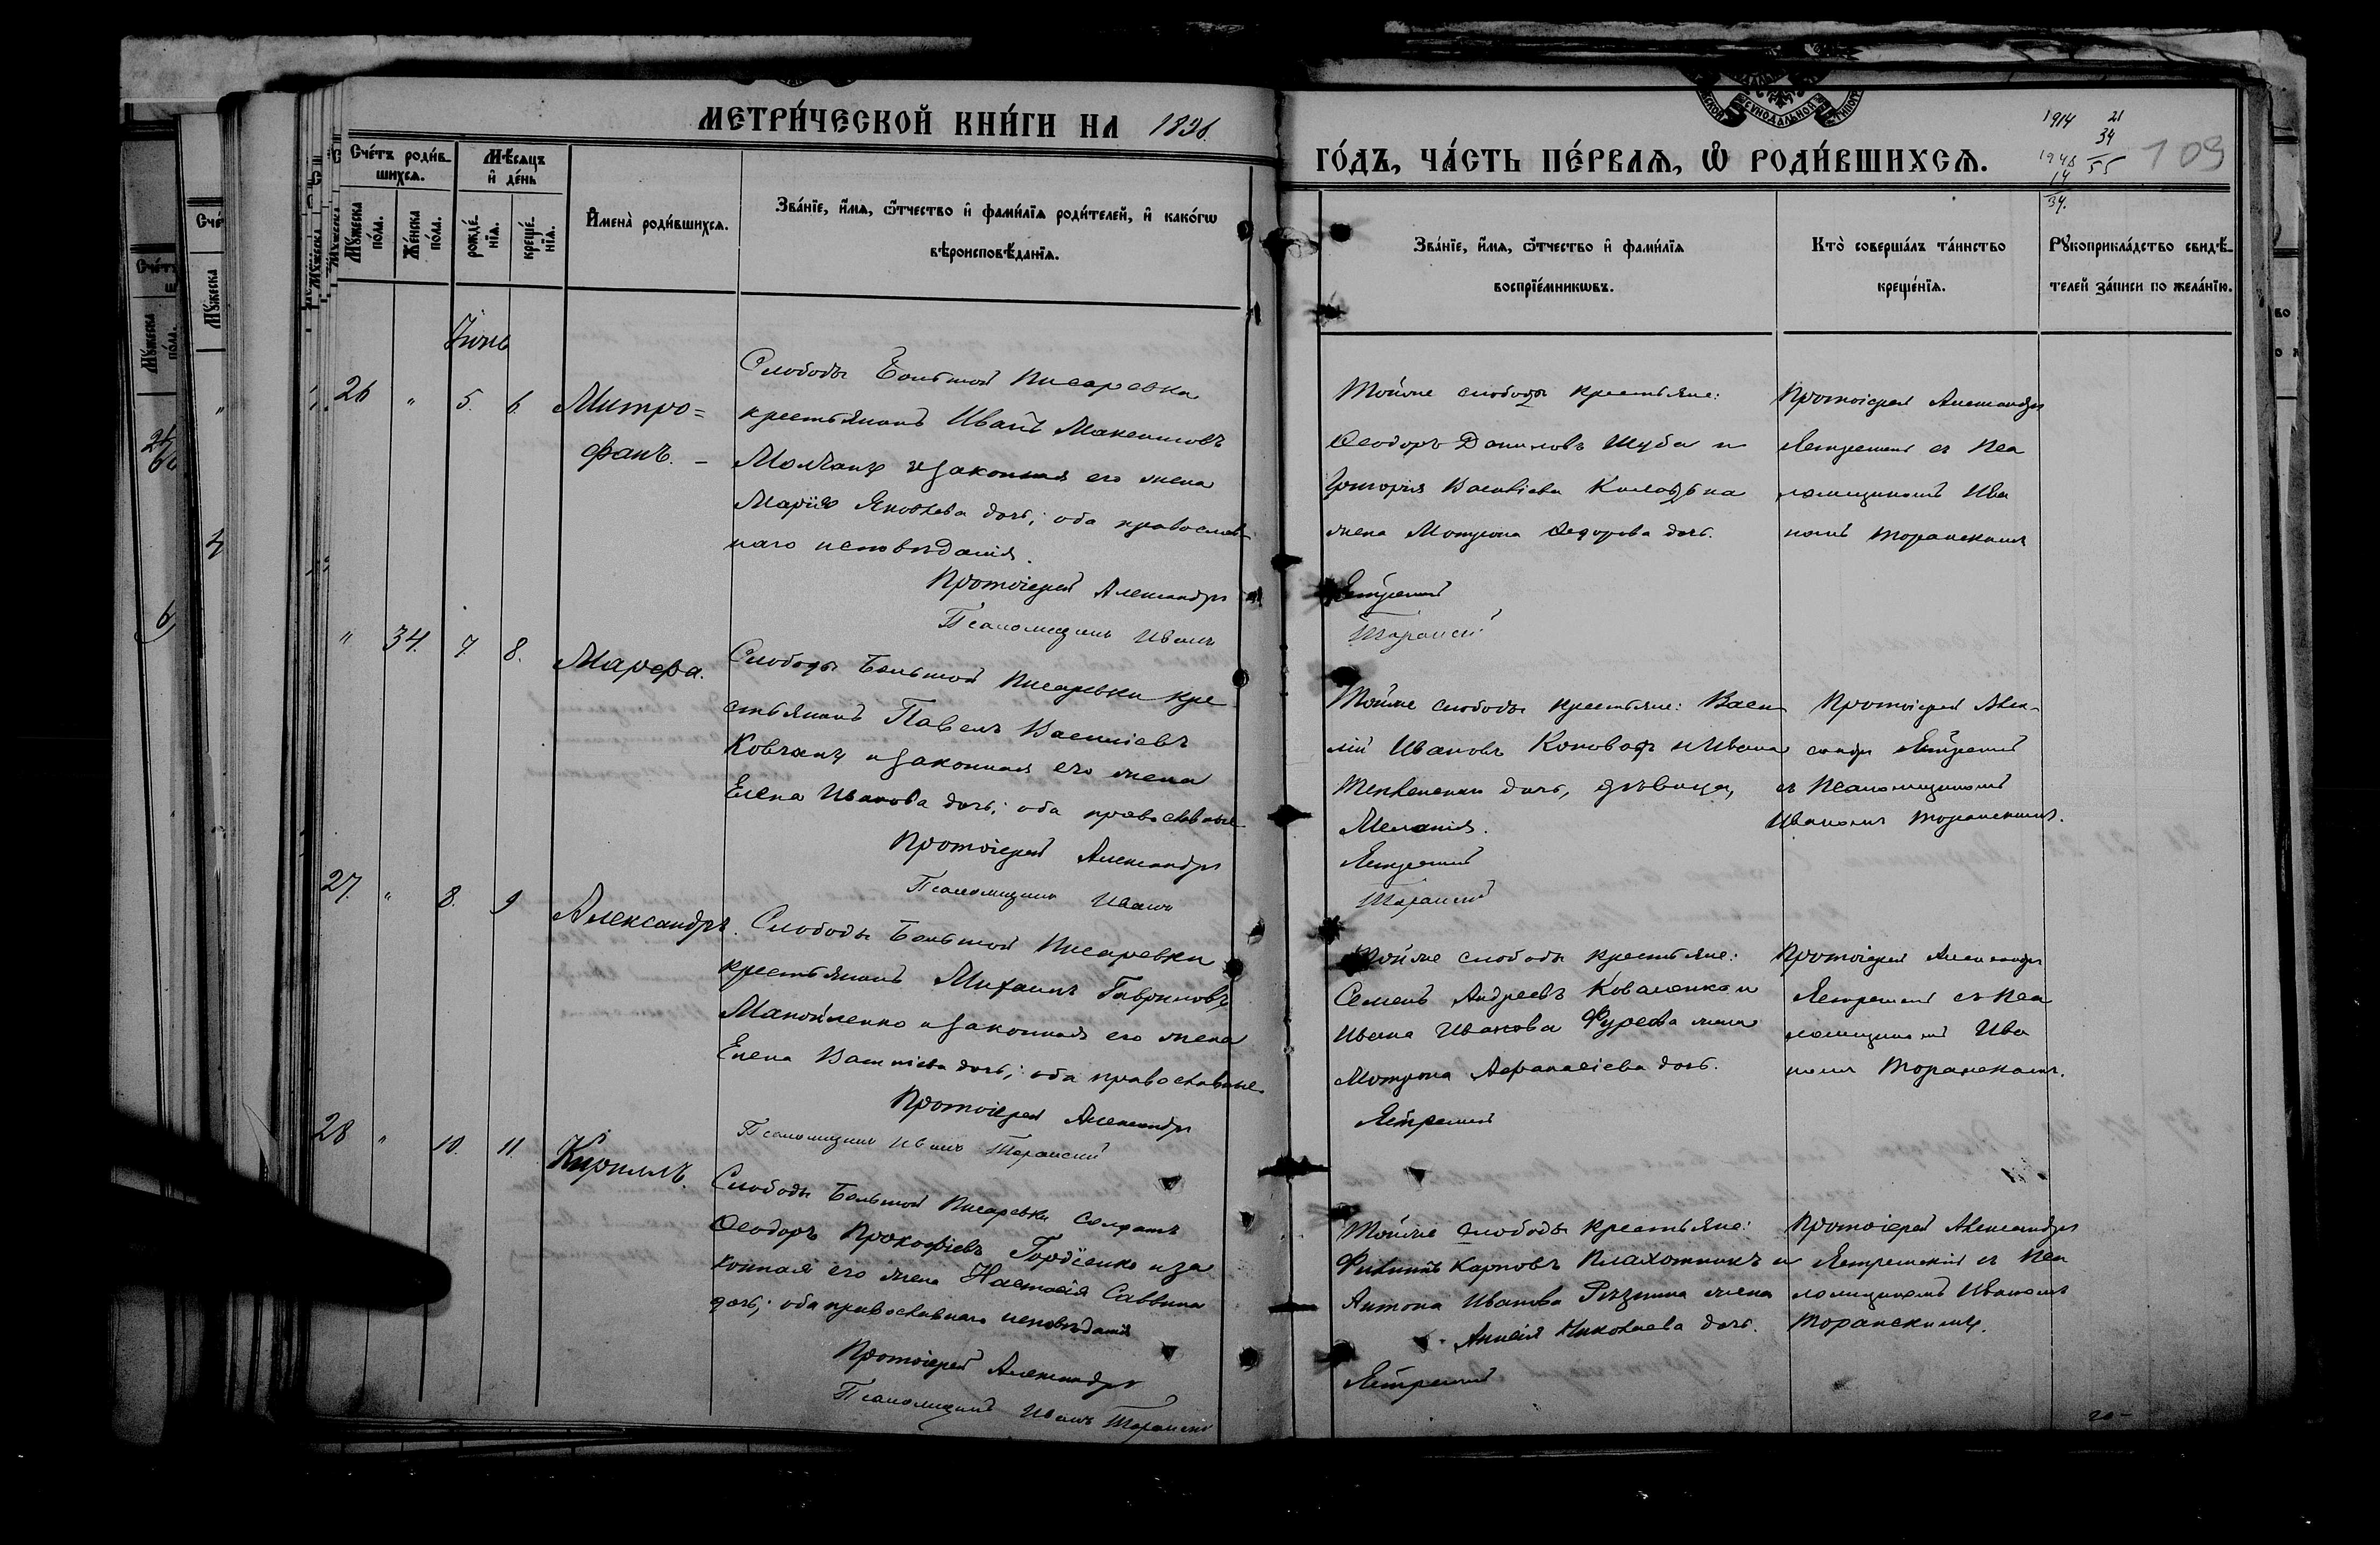 МЕТРИ́ЧЕСКОЙ КНИ́ГИ НА 1896.
ГО́ДЪ, ЧА́СТЬ ПЕ́РВАѦ, Ѡ РОДИ́ВШИХСѦ.
1914 21
34
1948 55
14
34.
109
Сче́тъ роди́в-
шихсѧ.
Мѣ́сѧцъ
и҆ де́нь
Мꙋ́жеска
по́ла.
Же́нска
по́ла.
рожде́-
нїѧ.
креще́-
нїѧ.
И҆мена̀ роди́вшихсѧ.
Зва́нїе, и҆́мѧ, ѻ҆́тчество и҆ фами́лїѧ роди́телей, и҆ како́гѡ
вѣроисповѣ́данїѧ.
Зва́нїе, и҆́мѧ, ѻ҆́тчество и҆ фами́лїѧ
воспрїе́мникѡвъ.
Кто̀ соверша́лъ та́инство
креще́нїѧ.
Рꙋкоприкла́дство свидѣ́-
телей за́писи по жела́нїю.
Іюнь
26 " 5. 6. Митро=
фанъ.
Слободы Большой Писаревки
крестьянинъ Иванъ Максимовъ
Молчанъ и законная его жена
Марія Яковлева дочь; оба православ-
наго исповѣданія.
Протоіерей Александръ
Псаломщикъ Иванъ
Тойже слободы крестьяне:
Ѳеодоръ Даниловъ Шуба и
Григорія Васильева
жена Мотрона Ѳедорова дочь.
Ястремский
Торанский
Протоіерей Александръ
Ястремский съ Пса
ломщикомъ Ива
номъ Торанскимъ
" 34. 7. 8. Марѳа.
Слободы Большой Писаревки кре
стьянинъ Павелъ Василіевъ
Ковчанъ и законная его жена
Елена Иванова дочь; оба православные
Протоіерей Александръ
Псаломщикъ Иванъ
Тойже слободы крестьяне: Васи
лій Ивановъ Коновод и Ивана
дочь, дѣвица,
Меланія.
Ястремский
Торанский
Протоіерей Алек-
сандръ Ястремский
съ Псаломщикомъ
Иваномъ Торанскимъ.
27. " 8. 9 Александръ.
Слободы Большой Писаревки
крестьянинъ Михаилъ Гавриловъ
Манойленко и законная его жена
Елена Василіева дочь; оба православные
Протоіерей Александръ
Псаломщикъ Иванъ Торанский
Тойже слободы крестьяне:
Семенъ Андреевъ Коваленко и
Ивана Иванова Фурсова жена
Мотрона Аѳанасіева дочь.
Ястремский
Протоіерей Александръ
Ястремский съ Пса
ломщикомъ Ива
номъ Торанскимъ.
28 " 10. 11. Кириллъ.
Слободы Большой Писаревки Солдатъ
Ѳеодоръ Прокофіевъ Гордіенко и за
конная его жена Настасія Саввина
дочь; оба православнаго исповѣданія
Протоіерей Александръ
Псаломщикъ Иванъ Торанский
Тойже слободы крестьяне:
Филиппъ Карповъ Плахотникъ и
Антона Иванова Рѣзника жена
Анисія Николаева дочь.
Ястремский
Протоіерей Александръ
Ястремский съ Пса
ломщикомъ Иваномъ
Торанскимъ.